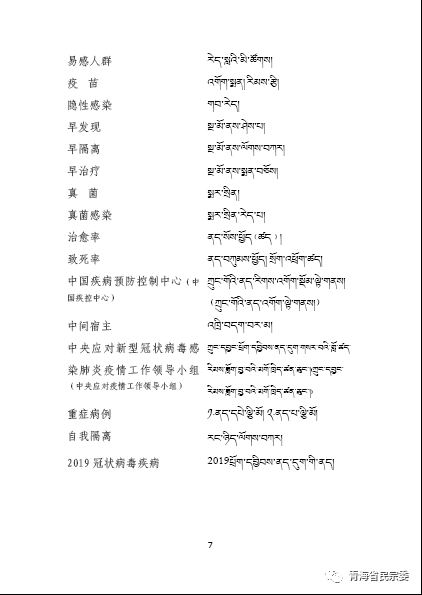 易感人群 རེད་སླའི་མི་ཚོགས།
疫 苗 འགོག་སྨན། རིམས་རྩི།
隐性感染 གབ་རེད།
早发现 སྔ་མོ་ནས་ཤེས་པ།
早隔离 སྔ་མོ་ནས་ལོགས་བཀར།
早治疗 སྔ་མོ་ནས་སྨན་བཅོས།
真 菌 སྨར་སྲིན།
真菌感染 སྨར་སྲིན་རེད་པ།
治愈率 ནད་སོས་ཕྱོད(ཚད)།
致死率 ནད་བཀུམས་ཕྱོད། སྲོག་འཕྲོག་ཚད།
中国疾病预防控制中心(中 ཀྲུང་གོའི་ནད་རིགས་འགོག་སྡོམ་ལྟེ་གནས།
国疾控中心) (ཀྲུང་གོའི་ནད་འགོག་ལྟེ་གནས།)
中间宿主 འཁྲི་བདག་བར་མ།
中央应对新型冠状病毒感 ཀྲུང་དབྱང་ཕྲོག་དབྱིབས་ནད་དུག་གསར་བའི་གློ་ཚད་
染肺炎疫情工作领导小组 རིམས་རློག་བྱ་བའི་མགོ་ཁྲིད་ཚན་ཆུང་།(ཀྲུང་དབྱང་
(中央应对疫情工作领导小组) རིམས་རློག་བྱ་བའི་མགོ་ཁྲིད་ཚན་ཆུང་།)
重症病例 ༡.ནད་དཔེ་ལྕི་མོ། ༢.ནད་པ་ལྕི་མོ།
自我隔离 རང་ཉིད་ལོགས་བཀར།
2019冠状病毒疾病 2019ཕྲོག་དབྱིབས་ནད་དུག་གི་ནད།
7
青海省民宗委